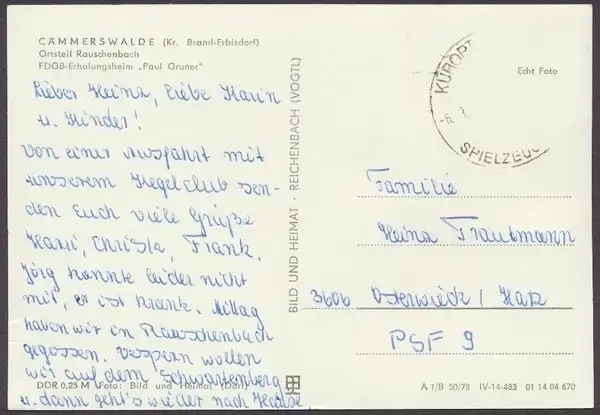 CÄMMERSWALDE (Kr. Brand-Erbisdorf)
Ortsteil Rauschenbach
FDGB-Erholungsheim „Paul Gruner"
Lieber Heinz, liebe Karin
u. Kinder!
Von einer Ausfahrt mit
unserem Kegelclub sen-
den Euch viele Grüße
Harri, Christa, Frank.
Jörg konnte leider nicht
mit, er ist krank. Mittag
haben wir in Rauschenbach
gegessen. Vespern wollen
wir auf dem Schwartenberg
u. dann geht's wieder nach Hause.
DDR 0,25 M Foto: Bild und Heimat (Darr)
BILD UND HEIMAT · REICHENBACH (VOGTL)
Echt Foto
KURORT
-6.
SPIELZEUG
Familie
Heinz Trautmann
3606 Osterwieck / Harz
PSF 9
A 1/B 50/78 IV-14-483 01 14 04 670